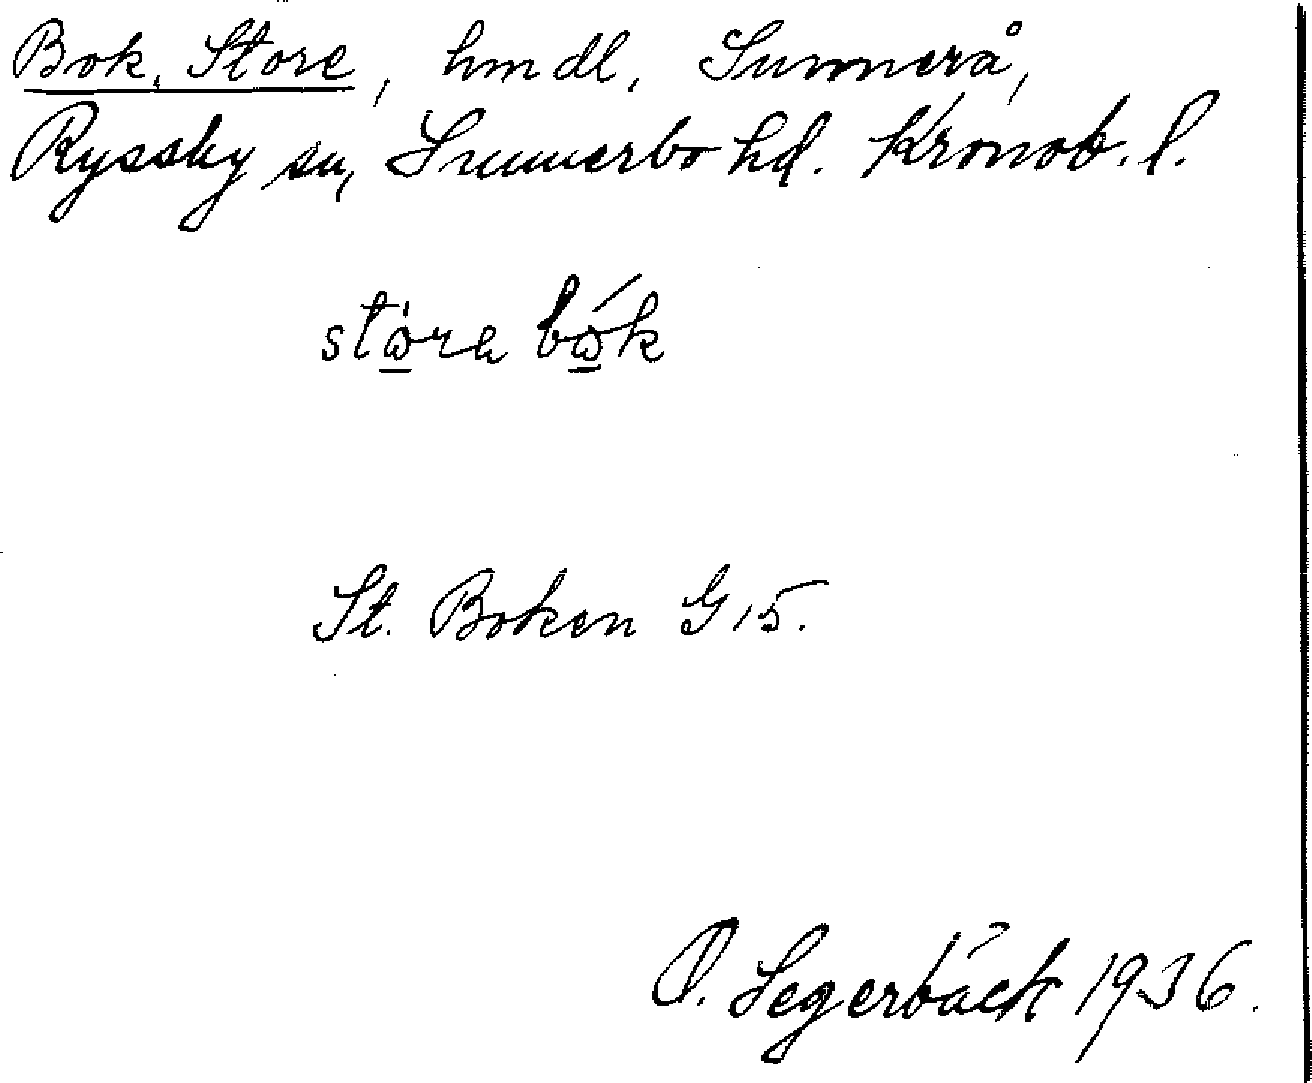 Bok, Store, hmdl, Sunnerå,
Ryssby sn, Sunnerbo hd. Kronob. l.
stὼ̲ra bώ̲k
St. Boken G 15.
O. Segerbäck 1936.